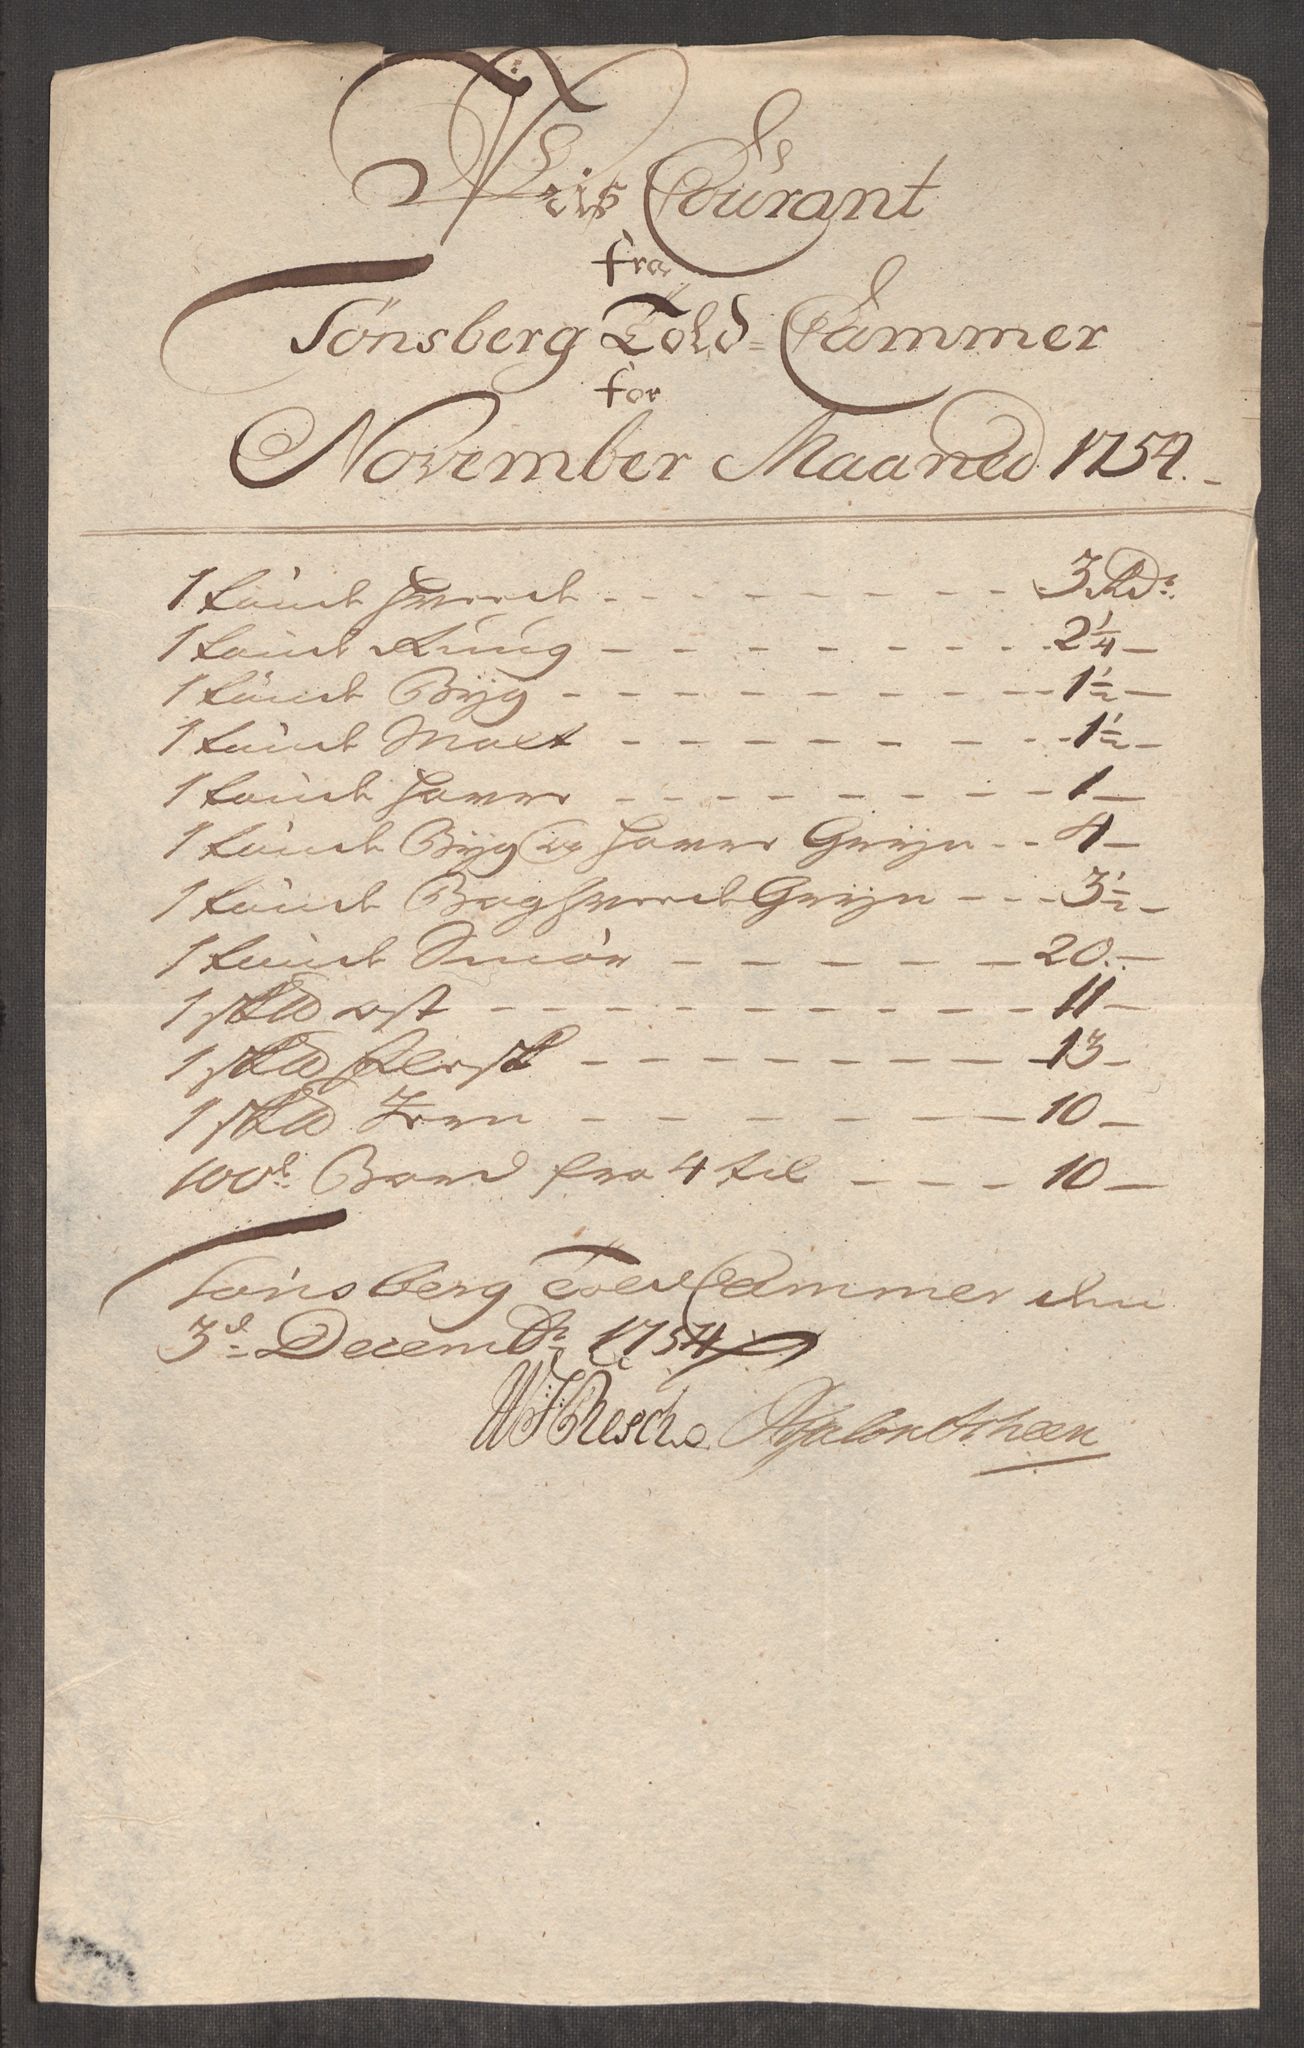 Pris Courant
fra
Tönsberg Told=Cammer
for
November Maaned 1754.
1 tönde hvede 3 Rdr.
1 tönde Rug 2 1/4
1 tönde Byg 1 1/2
1 tönde Malt 1 1/2
1 tönde Haver 1
1 tönde Byg og Haver Gryn 4
1 tönde Boghvede Gryn 3 1/2
1 tönde Smör 20.
1 sk℔ ost 11
1 sk℔ flesk 13
1 sk℔ Jern 10
100d. Bord fra 4 til 10
Tönsberg Told Cammer den
3d. Decembr. 1754
W J Resch